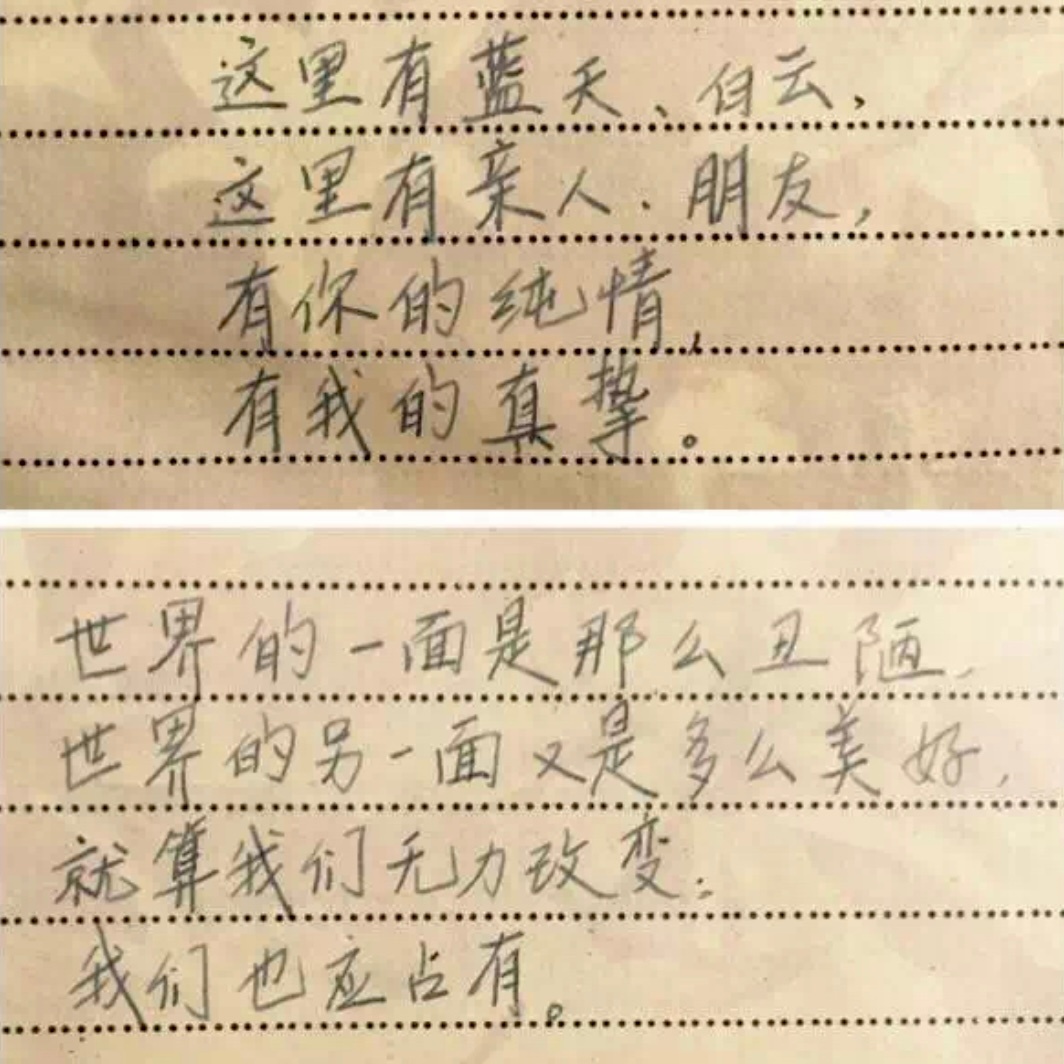 这里有蓝天、白云，
这里有亲人、朋友，
有你的纯情，
有我的真挚。
世界的一面是那么丑陋，
世界的另一面又是多么美好，
就算我们无力改变；
我们也应占有。